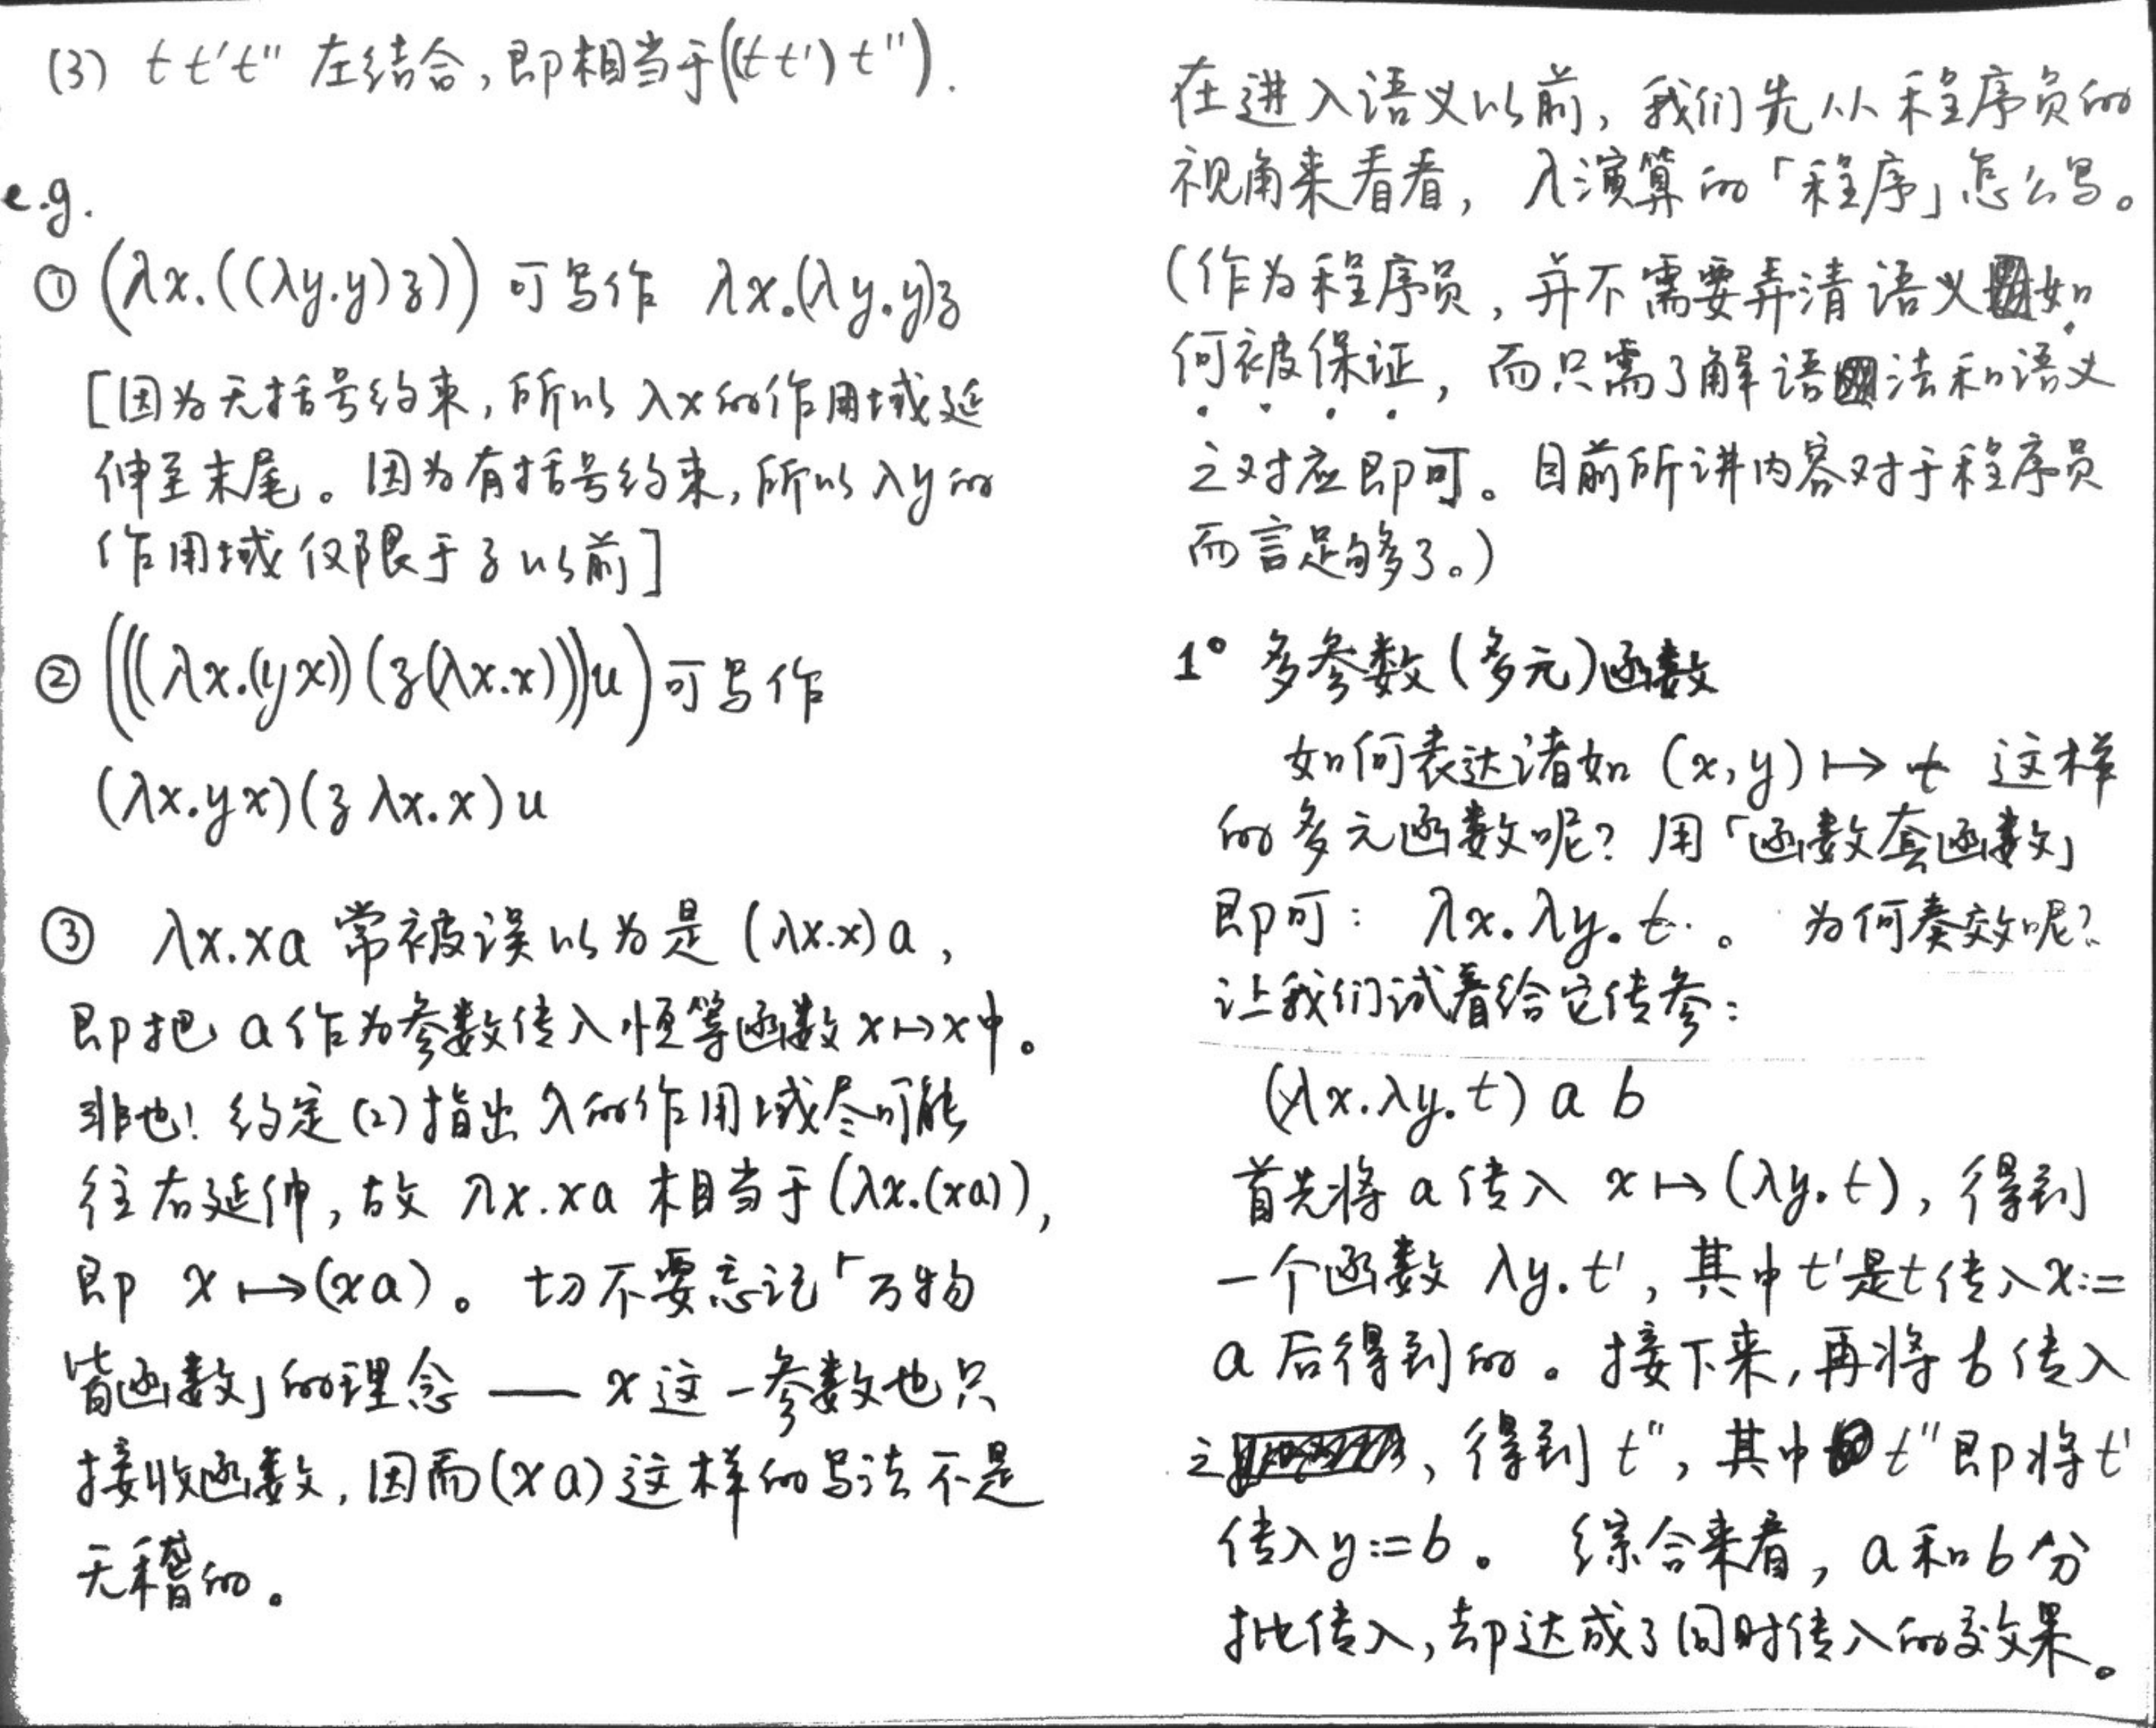 (3) t t' t'' 左结合,即相当于((t t') t'').
e.g.
① (λx.((λy.y)z)) 可写作 λx.(λy.y)z
[因为无括号约束,所以 λx的作用域延
伸至末尾。因为有括号约束,所以 λy的
作用域仅限于 z 以前]
② (((λx.(yx))(z(λx.x)))u) 可写作
(λx.yx)(z λx.x)u
③ λx.xa 常被误以为是 (λx.x)a,
即把 a 作为参数传入恒等函数 x↦x中。
非也! 约定(2)指出 λ的作用域尽可能
往右延伸,故 λx.xa 相当于(λx.(xa)),
即 x↦(xa)。切不要忘记「万物
皆函数」的理念 —— x 这一参数也只
接收函数,因而(xa)这样的写法不是
无稽的。
在进入语义以前,我们先从程序员的
视角来看看,λ演算的「程序」怎么写。
(作为程序员,并不需要弄清语义如
何被保证,而只需了解语法和语义
之对应即可。目前所讲内容对于程序员
而言足够了。)
1° 多参数(多元)函数
如何表达诸如 (x,y)↦t 这样
的多元函数呢? 用「函数套函数」
即可: λx.λy.t 。 为何奏效呢?
让我们试着给它传参:
(λx.λy.t) a b
首先将 a 传入 x↦(λy.t), 得到
一个函数 λy.t', 其中 t'是t传入x:=
a 后得到的。接下来,再将 b 传入
之, 得到 t'', 其中 t''即将 t'
传入 y:=b。 综合来看, a 和 b 分
批传入,却达成了同时传入的效果。